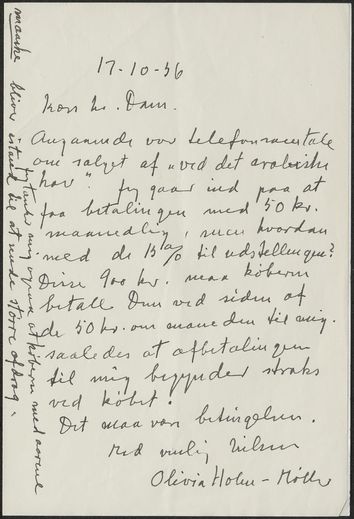 17-10-56
Kære hr. Dam.
Angaaende vor telefonsamtale
om salget af "ved det arabiske
hav". Jeg gaar ind paa at
faa betalingen med 50 kr.
maanedlig, men hvordan
med de 15% til udstillingen?
Disse 900 kr. maa køberen
betale Dem ved siden af
de 50 kr. om maaneden til mig.
saaledes at afbetalingen
til mig begynder straks
ved købet.
Det maa være betingelsen.
Med venlig hilsen
Olivia Holm-Møller
mig ogsaa at køberen med aarene
maaske bliver istand til at yde større afdrag.